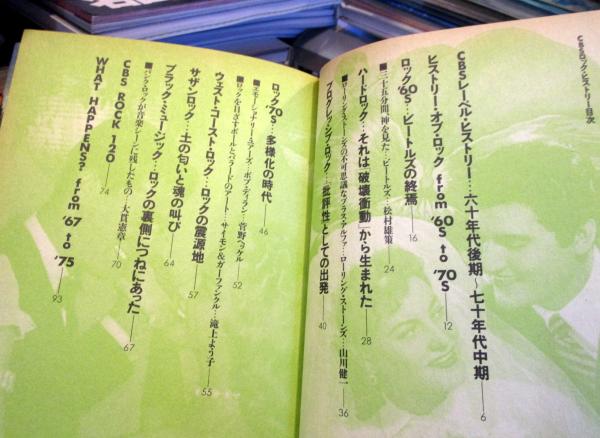 CBSロック・ヒストリー目次
CBSレーベル・ヒストリー…六十年代後期〜七十年代中期 6
ヒストリー・オブ・ロック from '60S to '70S 12
ロック'60S…ビートルズの終焉 16
■三十五分間、神を見た…ビートルズ…松村雄策 24
ハードロック…それは「破壊衝動」から生まれた 28
■ローリング・ストーンズの不可思議なプラス・アルファ…ローリング・ストーンズ…山川健一 36
プログレッシブ・ロック…「批評性」としての出発 40
ロック'70S…多様化の時代 46
■エモーショナリー・ユアーズ…ボブ・ディラン…菅野ヘッケル 52
■ロックを目ざすポールとバラードのアート…サイモン&ガーファンクル…滝上よう子 55
ウェスト・コースト・ロック…ロックの震源地 57
サザンロック…土の匂いと魂の叫び 64
ブラック・ミュージック…ロックの裏側につねにあった 67
■パンク・ロックが音楽シーンに残したもの…大貫憲章 70
CBS ROCK 120 74
WHAT HAPPENS? from '67 to '75 93